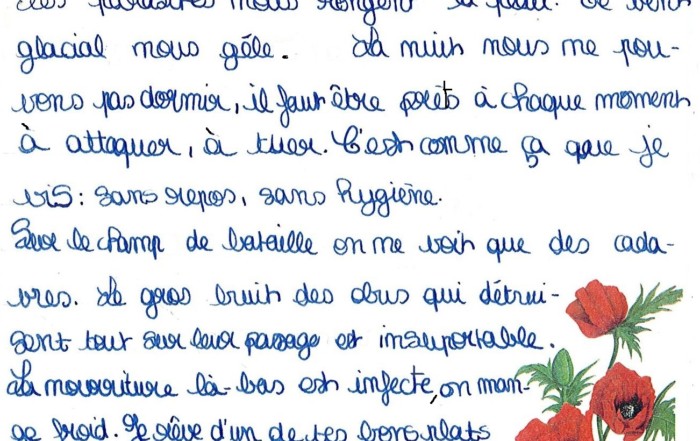 des parasites nous rongent la peau. Le vent
glacial nous gèle. La nuit nous ne pou-
vons pas dormir, il faut être prêts à chaque moment
à attaquer, à tuer. C'est comme ça que je
vis : sans repos, sans hygiène.
Sur le champ de bataille on ne voit que des cada-
vres. Le gros bruit des obus qui détrui-
sent tout sur leur passage est insuportable.
La nourriture là-bas est infecte, on man-
ge froid. Je rêve d'un de tes bons plats